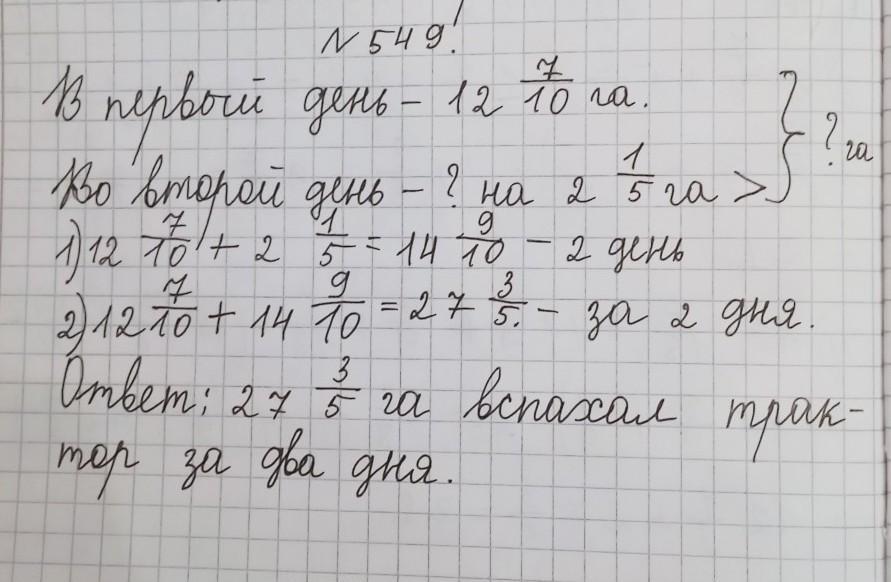 N 549!
В первый день – 12 7/10 га.
Во второй день – ? на 2 1/5 га > } ? га
1) 12 7/10 + 2 1/5 = 14 9/10 – 2 день
2) 12 7/10 + 14 9/10 = 27 3/5. – за 2 дня.
Ответ: 27 3/5 га вспахал трак-
тор за два дня.